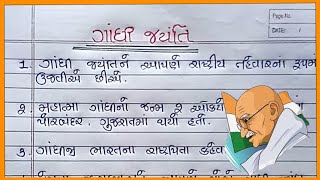 Page No.
Date: /
ગાંધી જયંતિ
1. ગાંધી જયંતિને આપણે રાષ્ટ્રીય તહેવારના રૂપમાં
ઉજવીએ છીએ.
2. મહાત્મા ગાંધીનો જન્મ 2 ઓક્ટો
પોરબંદર, ગુજરાતમાં થયો હતો.
3. ગાંધીજી ભારતના રાષ્ટ્રપિતા કહેવા